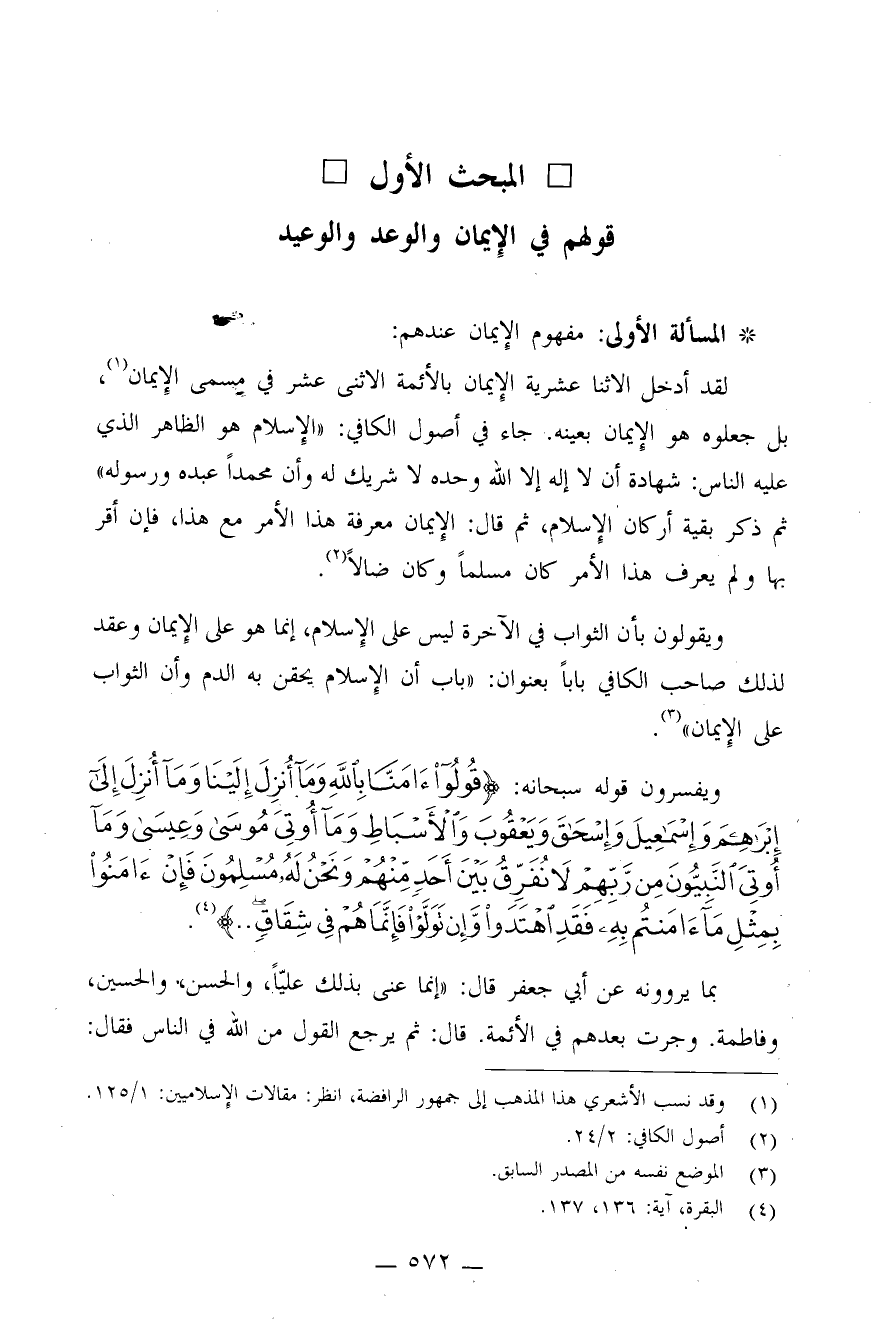 □ المبحث الأول □
قولهم في الإيمان والوعد والوعيد
* المسألة الأولى: مفهوم الإيمان عندهم:
لقد أدخل الاثنا عشرية الإيمان بالأئمة الاثنى عشر في مسمى الإيمان(١)،
بل جعلوه هو الإيمان بعينه. جاء في أصول الكافي: «الإسلام هو الظاهر الذي
عليه الناس: شهادة أن لا إله إلا الله وحده لا شريك له وأن محمداً عبده ورسوله»
ثم ذكر بقية أركان الإسلام، ثم قال: الإيمان معرفة هذا الأمر مع هذا، فإن أقر
بها ولم يعرف هذا الأمر كان مسلماً وكان ضالاً(٢).
ويقولون بأن الثواب في الآخرة ليس على الإسلام، إنما هو على الإيمان وعقد
لذلك صاحب الكافي باباً بعنوان: «باب أن الإسلام يحقن به الدم وأن الثواب
على الإيمان»(٣).
ويفسرون قوله سبحانه: ﴿قُولُوٓاْ ءَامَنَّا بِٱللَّهِ وَمَآ أُنزِلَ إِلَيْنَا وَمَآ أُنزِلَ إِلَىٰٓ
إِبْرَٰهِـۧمَ وَإِسْمَٰعِيلَ وَإِسْحَٰقَ وَيَعْقُوبَ وَٱلْأَسْبَاطِ وَمَآ أُوتِىَ مُوسَىٰ وَعِيسَىٰ وَمَآ
أُوتِىَ ٱلنَّبِيُّونَ مِن رَّبِّهِمْ لَا نُفَرِّقُ بَيْنَ أَحَدٍ مِّنْهُمْ وَنَحْنُ لَهُۥ مُسْلِمُونَ فَإِنْ ءَامَنُواْ
بِمِثْلِ مَآ ءَامَنتُم بِهِۦ فَقَدِ ٱهْتَدَواْ وَّإِن تَوَلَّوْاْ فَإِنَّمَا هُمْ فِى شِقَاقٍۖ..﴾(٤).
بما يروونه عن أبي جعفر قال: «إنما عنى بذلك عليّاً، والحسن، والحسين،
وفاطمة. وجرت بعدهم في الأئمة. قال: ثم يرجع القول من الله في الناس فقال:
(١) وقد نسب الأشعري هذا المذهب إلى جمهور الرافضة، انظر: مقالات الإسلاميين: ١٢٥/١.
(٢) أصول الكافي: ٢٤/٢.
(٣) الموضع نفسه من المصدر السابق.
(٤) البقرة، آية: ١٣٦، ١٣٧.
— ٥٧٢ —